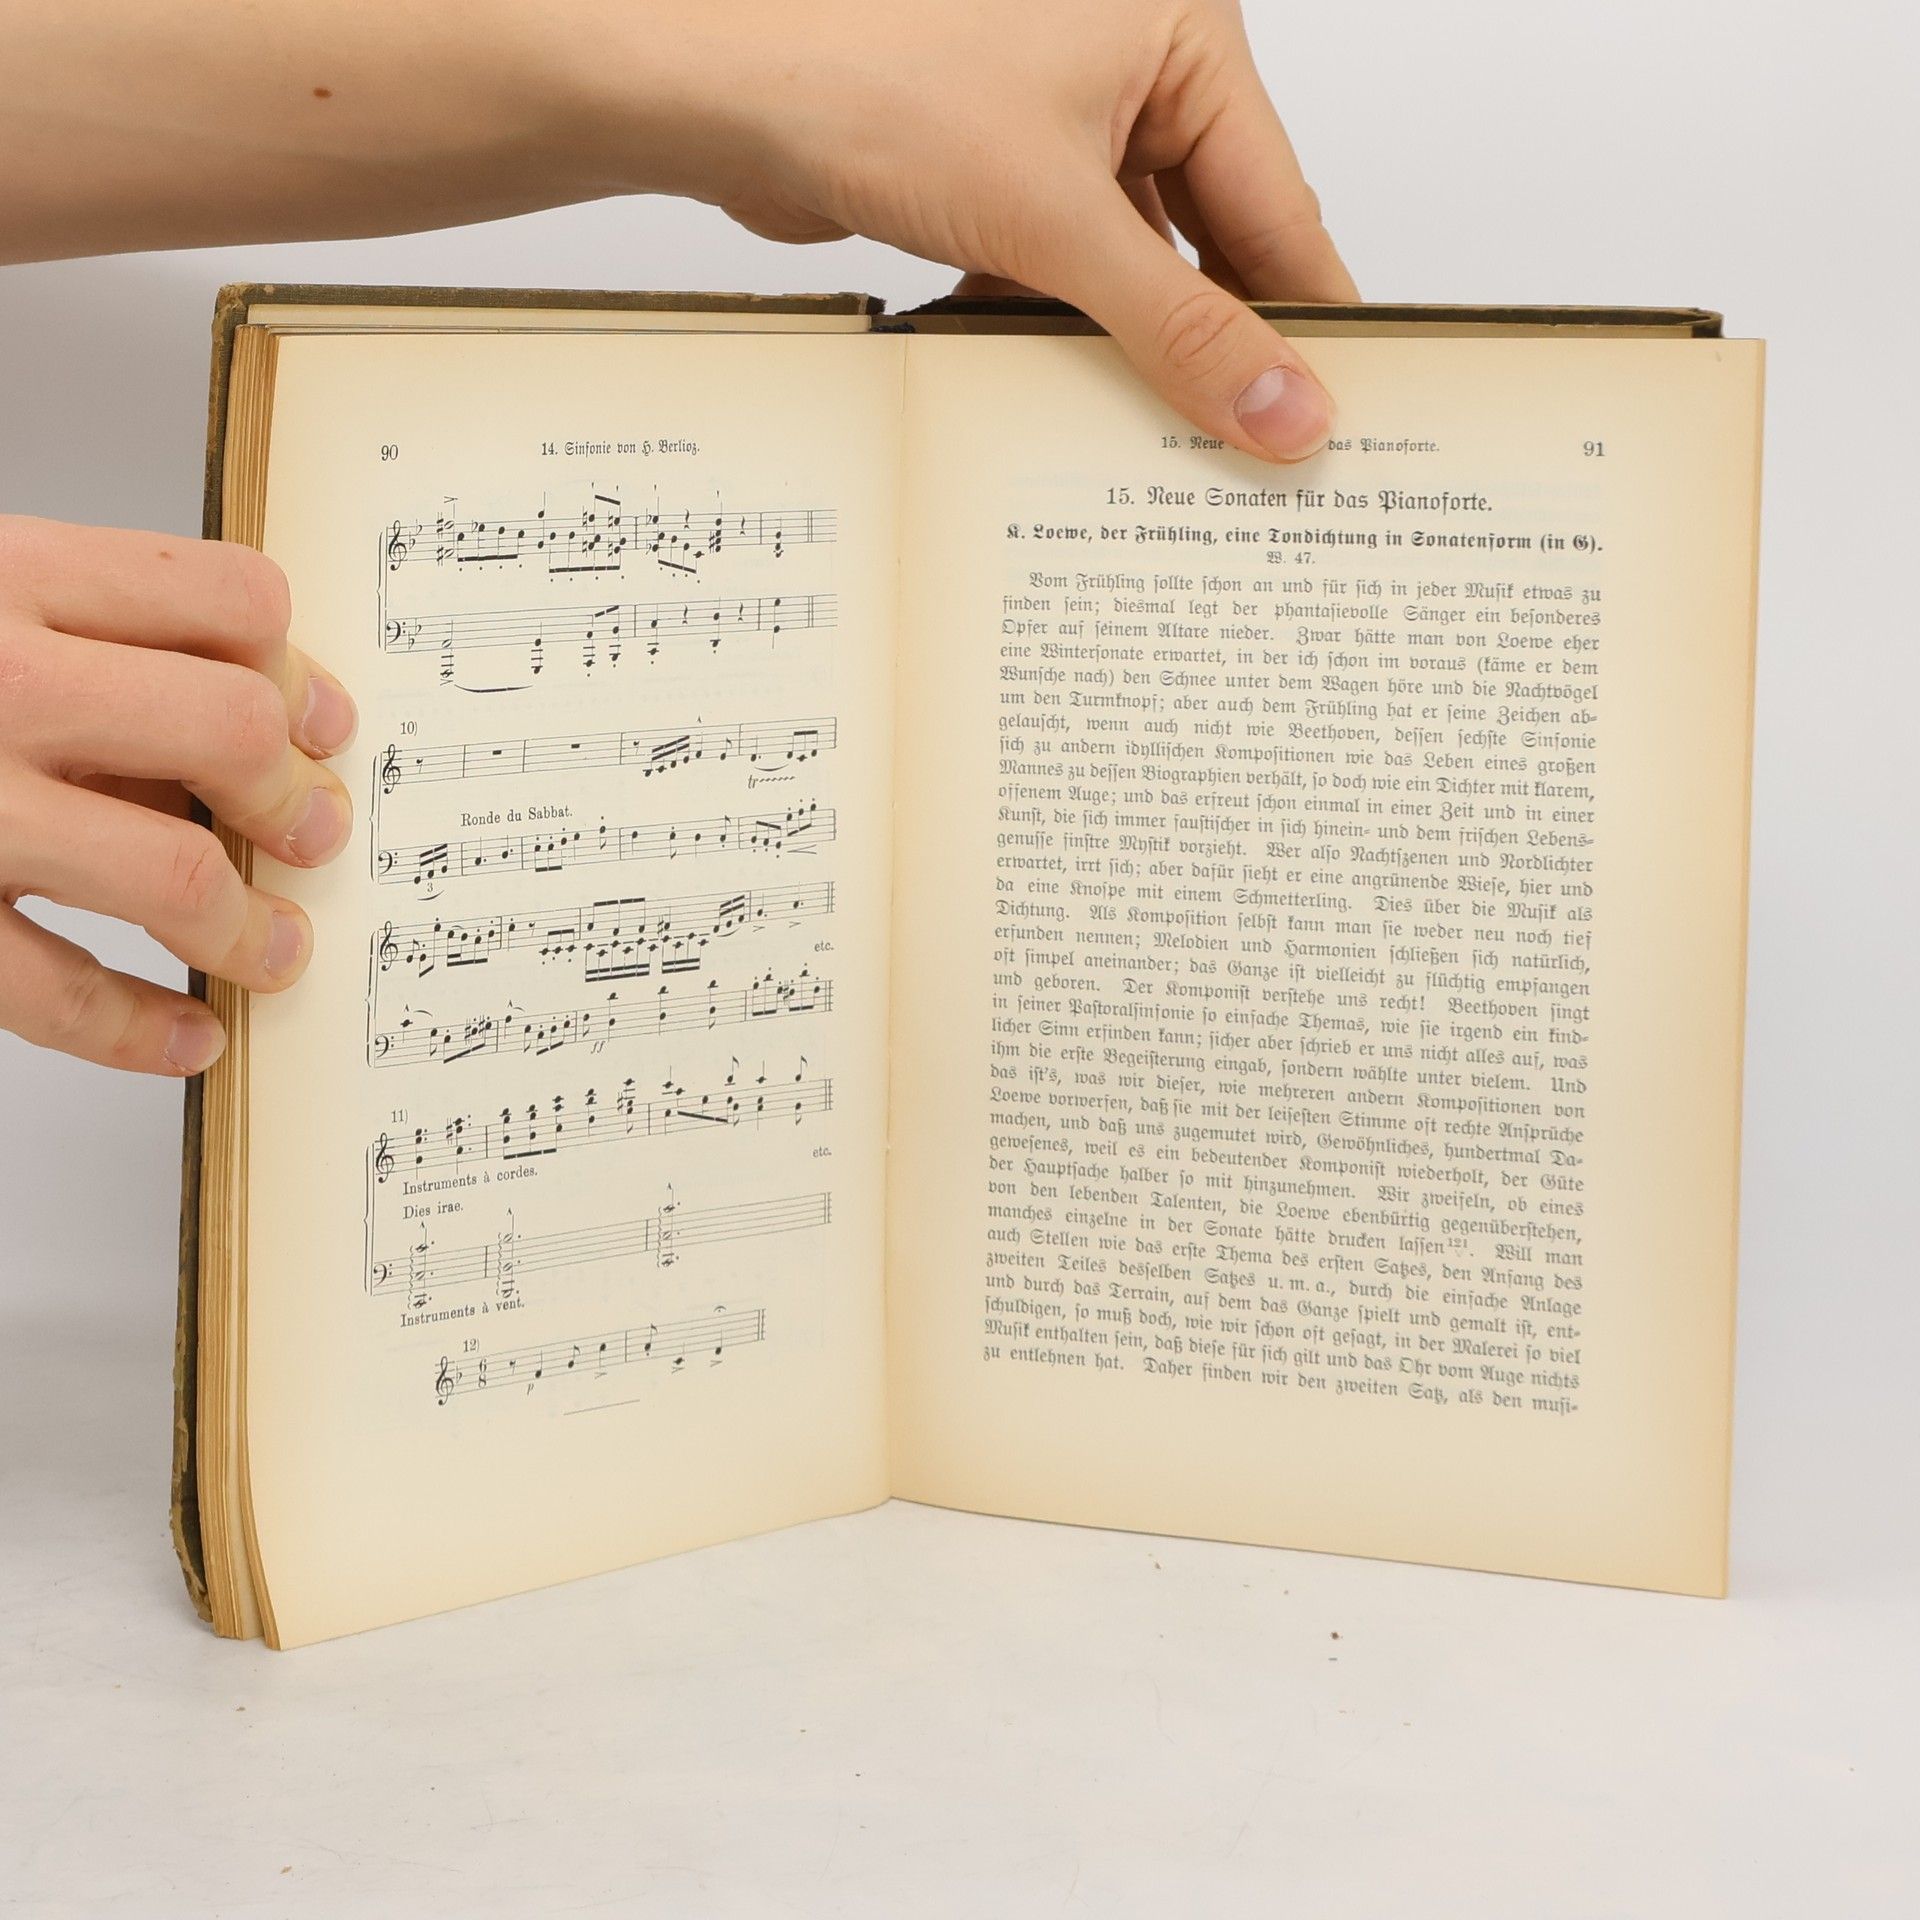 90
14. Sinfonie von H. Berlioz.
10)
tr
Ronde du Sabbat.
3
etc.
ff
11)
etc.
Instruments à cordes.
Dies irae.
Instruments à vent.
12)
6
8
p
15. Neue das Pianoforte.
91
15. Neue Sonaten für das Pianoforte.
K. Loewe, der Frühling, eine Tondichtung in Sonatenform (in G).
W. 47.
Vom Frühling sollte schon an und für sich in jeder Musik etwas zu
finden sein; diesmal legt der phantasievolle Sänger ein besonderes
Opfer auf seinem Altare nieder. Zwar hätte man von Loewe eher
eine Wintersonate erwartet, in der ich schon im voraus (käme er dem
Wunsche nach) den Schnee unter dem Wagen höre und die Nachtvögel
um den Turmknopf; aber auch dem Frühling hat er seine Zeichen ab-
gelauscht, wenn auch nicht wie Beethoven, dessen sechste Sinfonie
sich zu andern idyllischen Kompositionen wie das Leben eines großen
Mannes zu dessen Biographien verhält, so doch wie ein Dichter mit klarem,
offenem Auge; und das erfreut schon einmal in einer Zeit und in einer
Kunst, die sich immer faustischer in sich hinein- und dem frischen Lebens-
genusse finstre Mystik vorzieht. Wer also Nachtszenen und Nordlichter
erwartet, irrt sich; aber dafür sieht er eine angrünende Wiese, hier und
da eine Knospe mit einem Schmetterling. Dies über die Musik als
Dichtung. Als Komposition selbst kann man sie weder neu noch tief
erfunden nennen; Melodien und Harmonien schließen sich natürlich,
oft simpel aneinander; das Ganze ist vielleicht zu flüchtig empfangen
und geboren. Der Komponist verstehe uns recht! Beethoven singt
in seiner Pastoralsinfonie so einfache Themas, wie sie irgend ein kind-
licher Sinn erfinden kann; sicher aber schrieb er uns nicht alles auf, was
ihm die erste Begeisterung eingab, sondern wählte unter vielem. Und
das ist's, was wir dieser, wie mehreren andern Kompositionen von
Loewe vorwerfen, daß sie mit der leisesten Stimme oft rechte Ansprüche
machen, und daß uns zugemutet wird, Gewöhnliches, hundertmal Da-
gewesenes, weil es ein bedeutender Komponist wiederholt, der Güte
der Hauptsache halber so mit hinzunehmen. Wir zweifeln, ob eines
von den lebenden Talenten, die Loewe ebenbürtig gegenüberstehen,
manches einzelne in der Sonate hätte drucken lassen¹²¹. Will man
auch Stellen wie das erste Thema des ersten Satzes, den Anfang des
zweiten Teiles desselben Satzes u. m. a., durch die einfache Anlage
und durch das Terrain, auf dem das Ganze spielt und gemalt ist, ent-
schuldigen, so muß doch, wie wir schon oft gesagt, in der Malerei so viel
Musik enthalten sein, daß diese für sich gilt und das Ohr vom Auge nichts
zu entlehnen hat. Daher finden wir den zweiten Satz, als den musi-